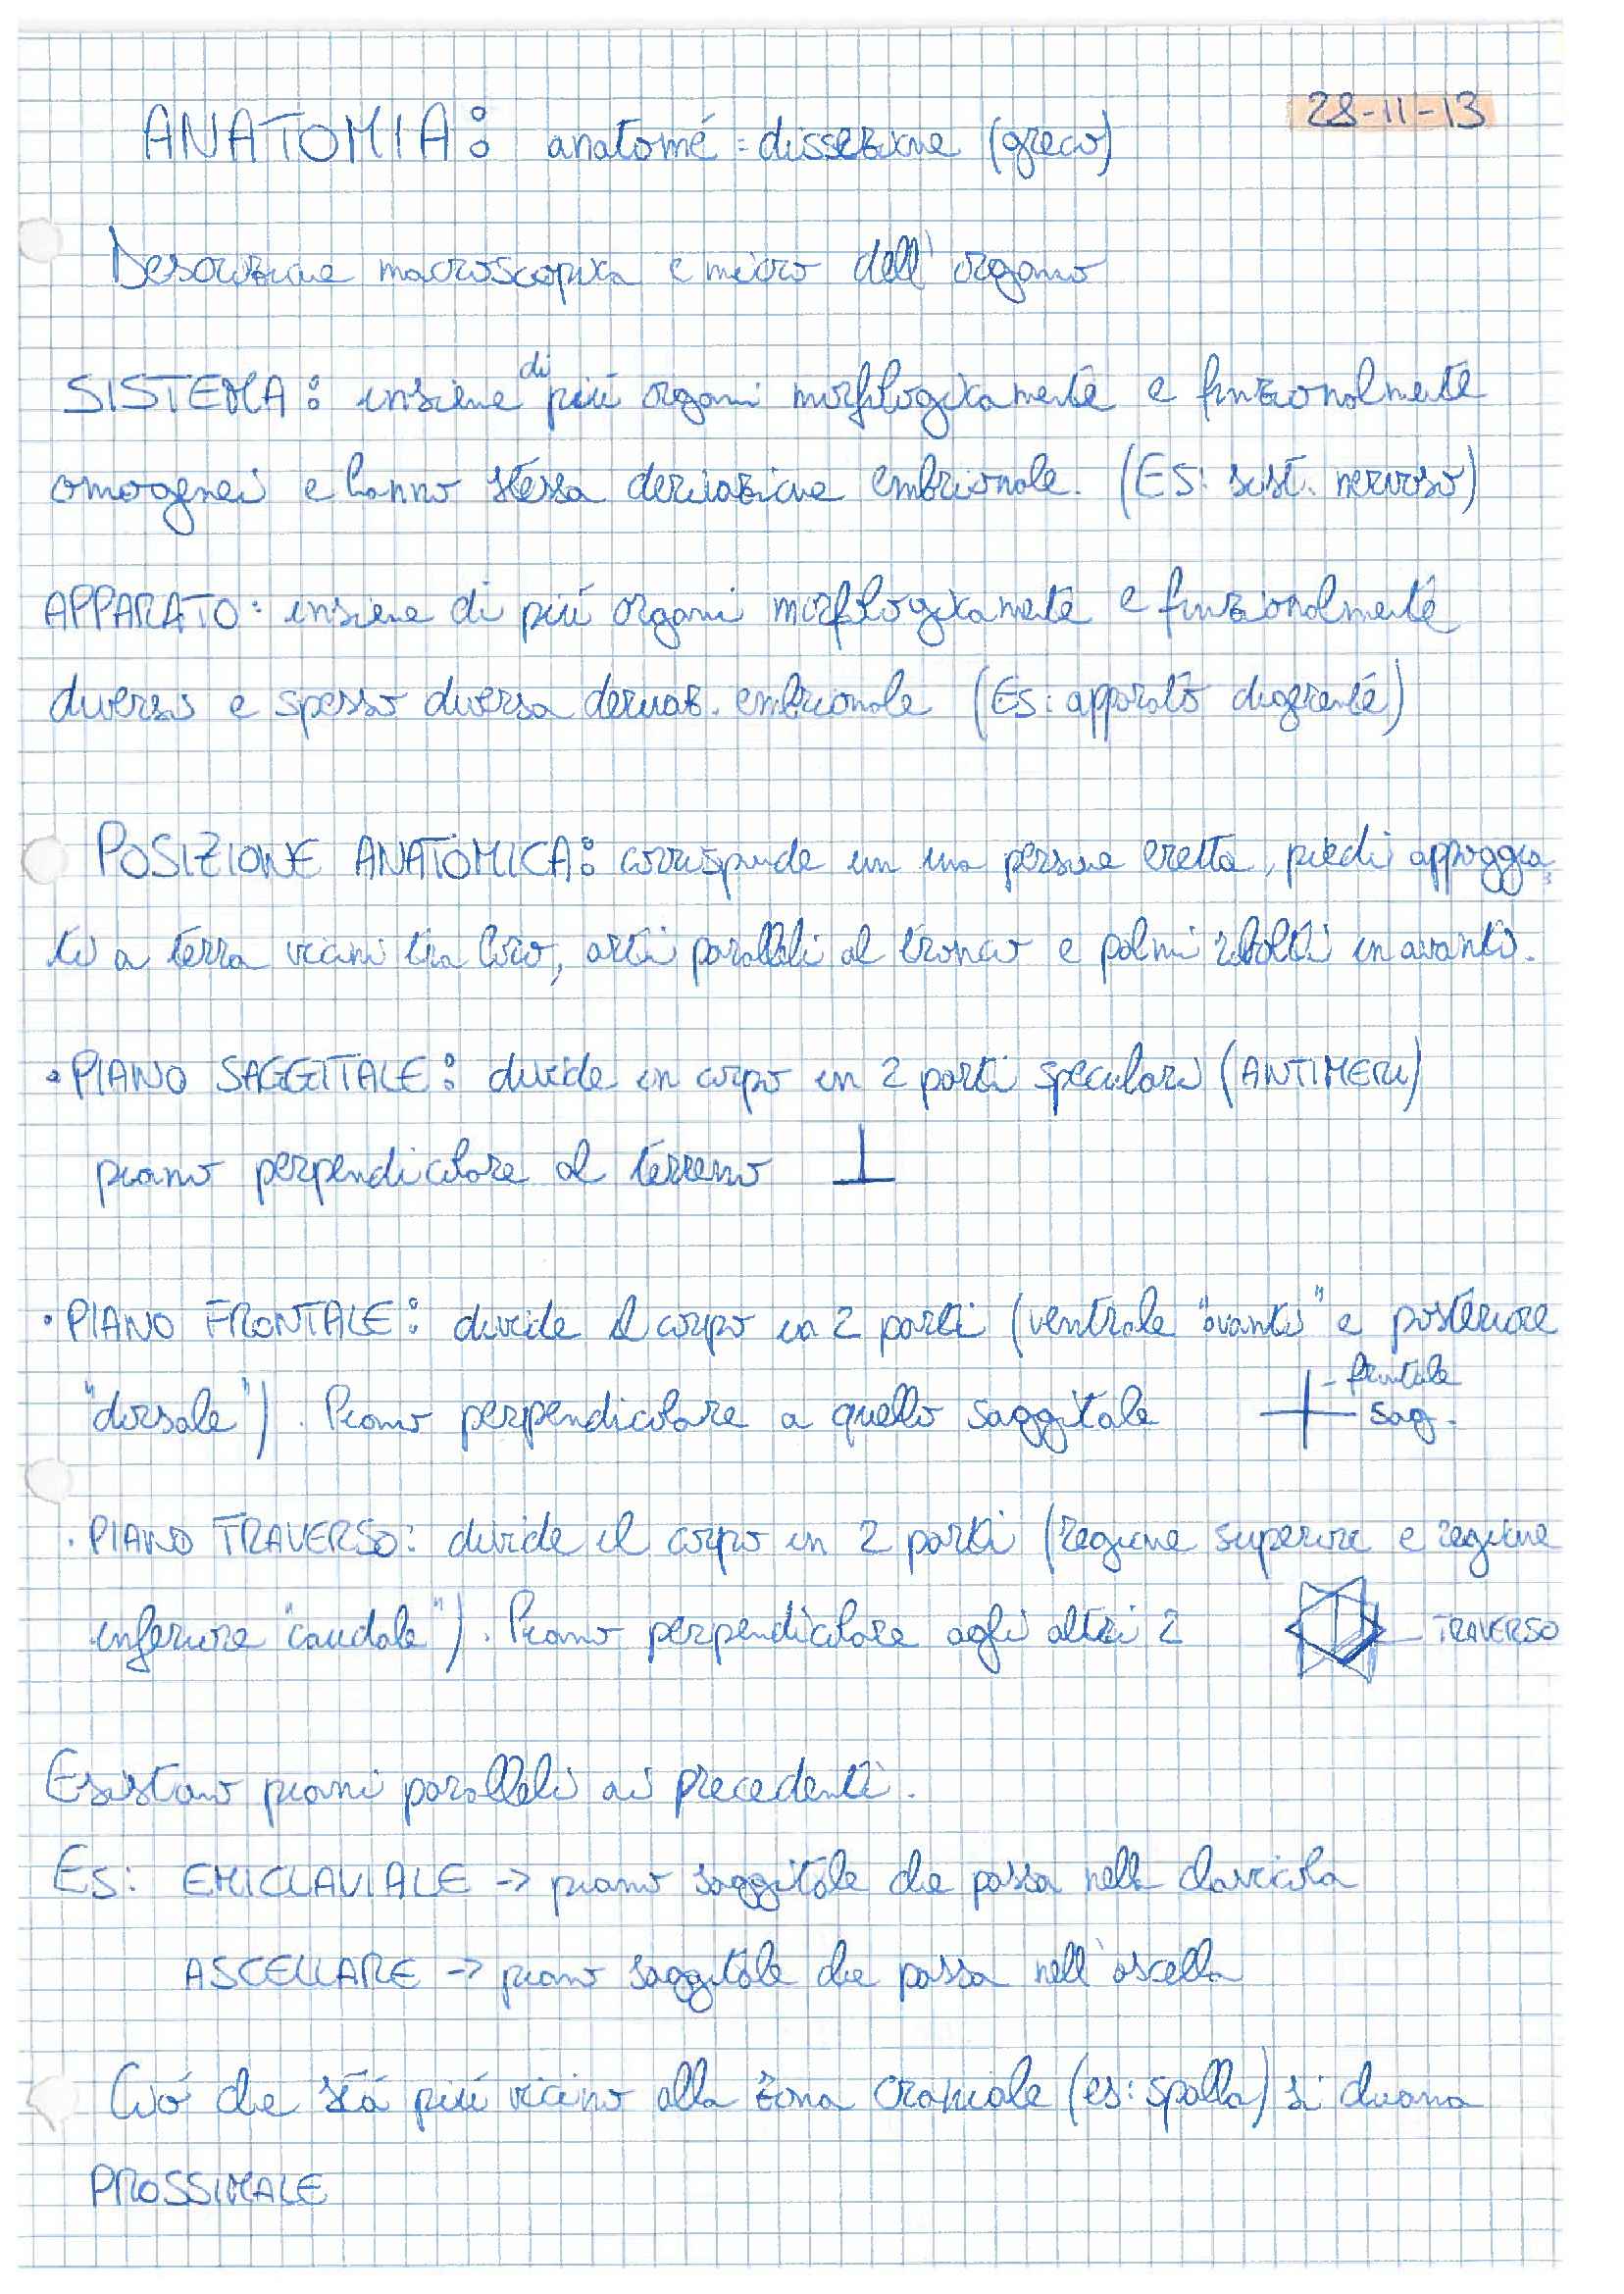 28-11-13
ANATOMIA: anatomé = dissezione (greco)
Descrizione macroscopica e micro dell'organo
SISTEMA: insieme di più organi morfologicamente e funzionalmente
omogenei e hanno stessa derivazione embrionale. (ES: sist. nervoso)
APPARATO: insieme di più organi morfologicamente e funzionalmente
diversi e spesso diversa derivaz. embrionale (Es: apparato digerente)
POSIZIONE ANATOMICA: corrisponde in una persona eretta, piedi appoggia
ti a terra vicini tra loro, arti paralleli al tronco e palmi rivolti in avanti.
• PIANO SAGGITTALE: divide in corpo in 2 parti speculari (ANTIMERI)
piano perpendicolare al terreno ⊥
• PIANO FRONTALE: divide il corpo in 2 parti (ventrale "avanti" e posteriore
"dorsale"). Piano perpendicolare a quello saggitale
- frontale
sag.
• PIANO TRAVERSO: divide il corpo in 2 parti (regione superiore e regione
inferiore "caudale"). Piano perpendicolare agli altri 2
TRAVERSO
Esistono piani paralleli ai precedenti.
Es: EMICLAVIALE -> piano saggitale che passa nella clavicola
ASCELLARE -> piano saggitale che passa nell'ascella
Ciò che stá più vicino alla zona craniale (es: spalla) si chiama
PROSSIMALE